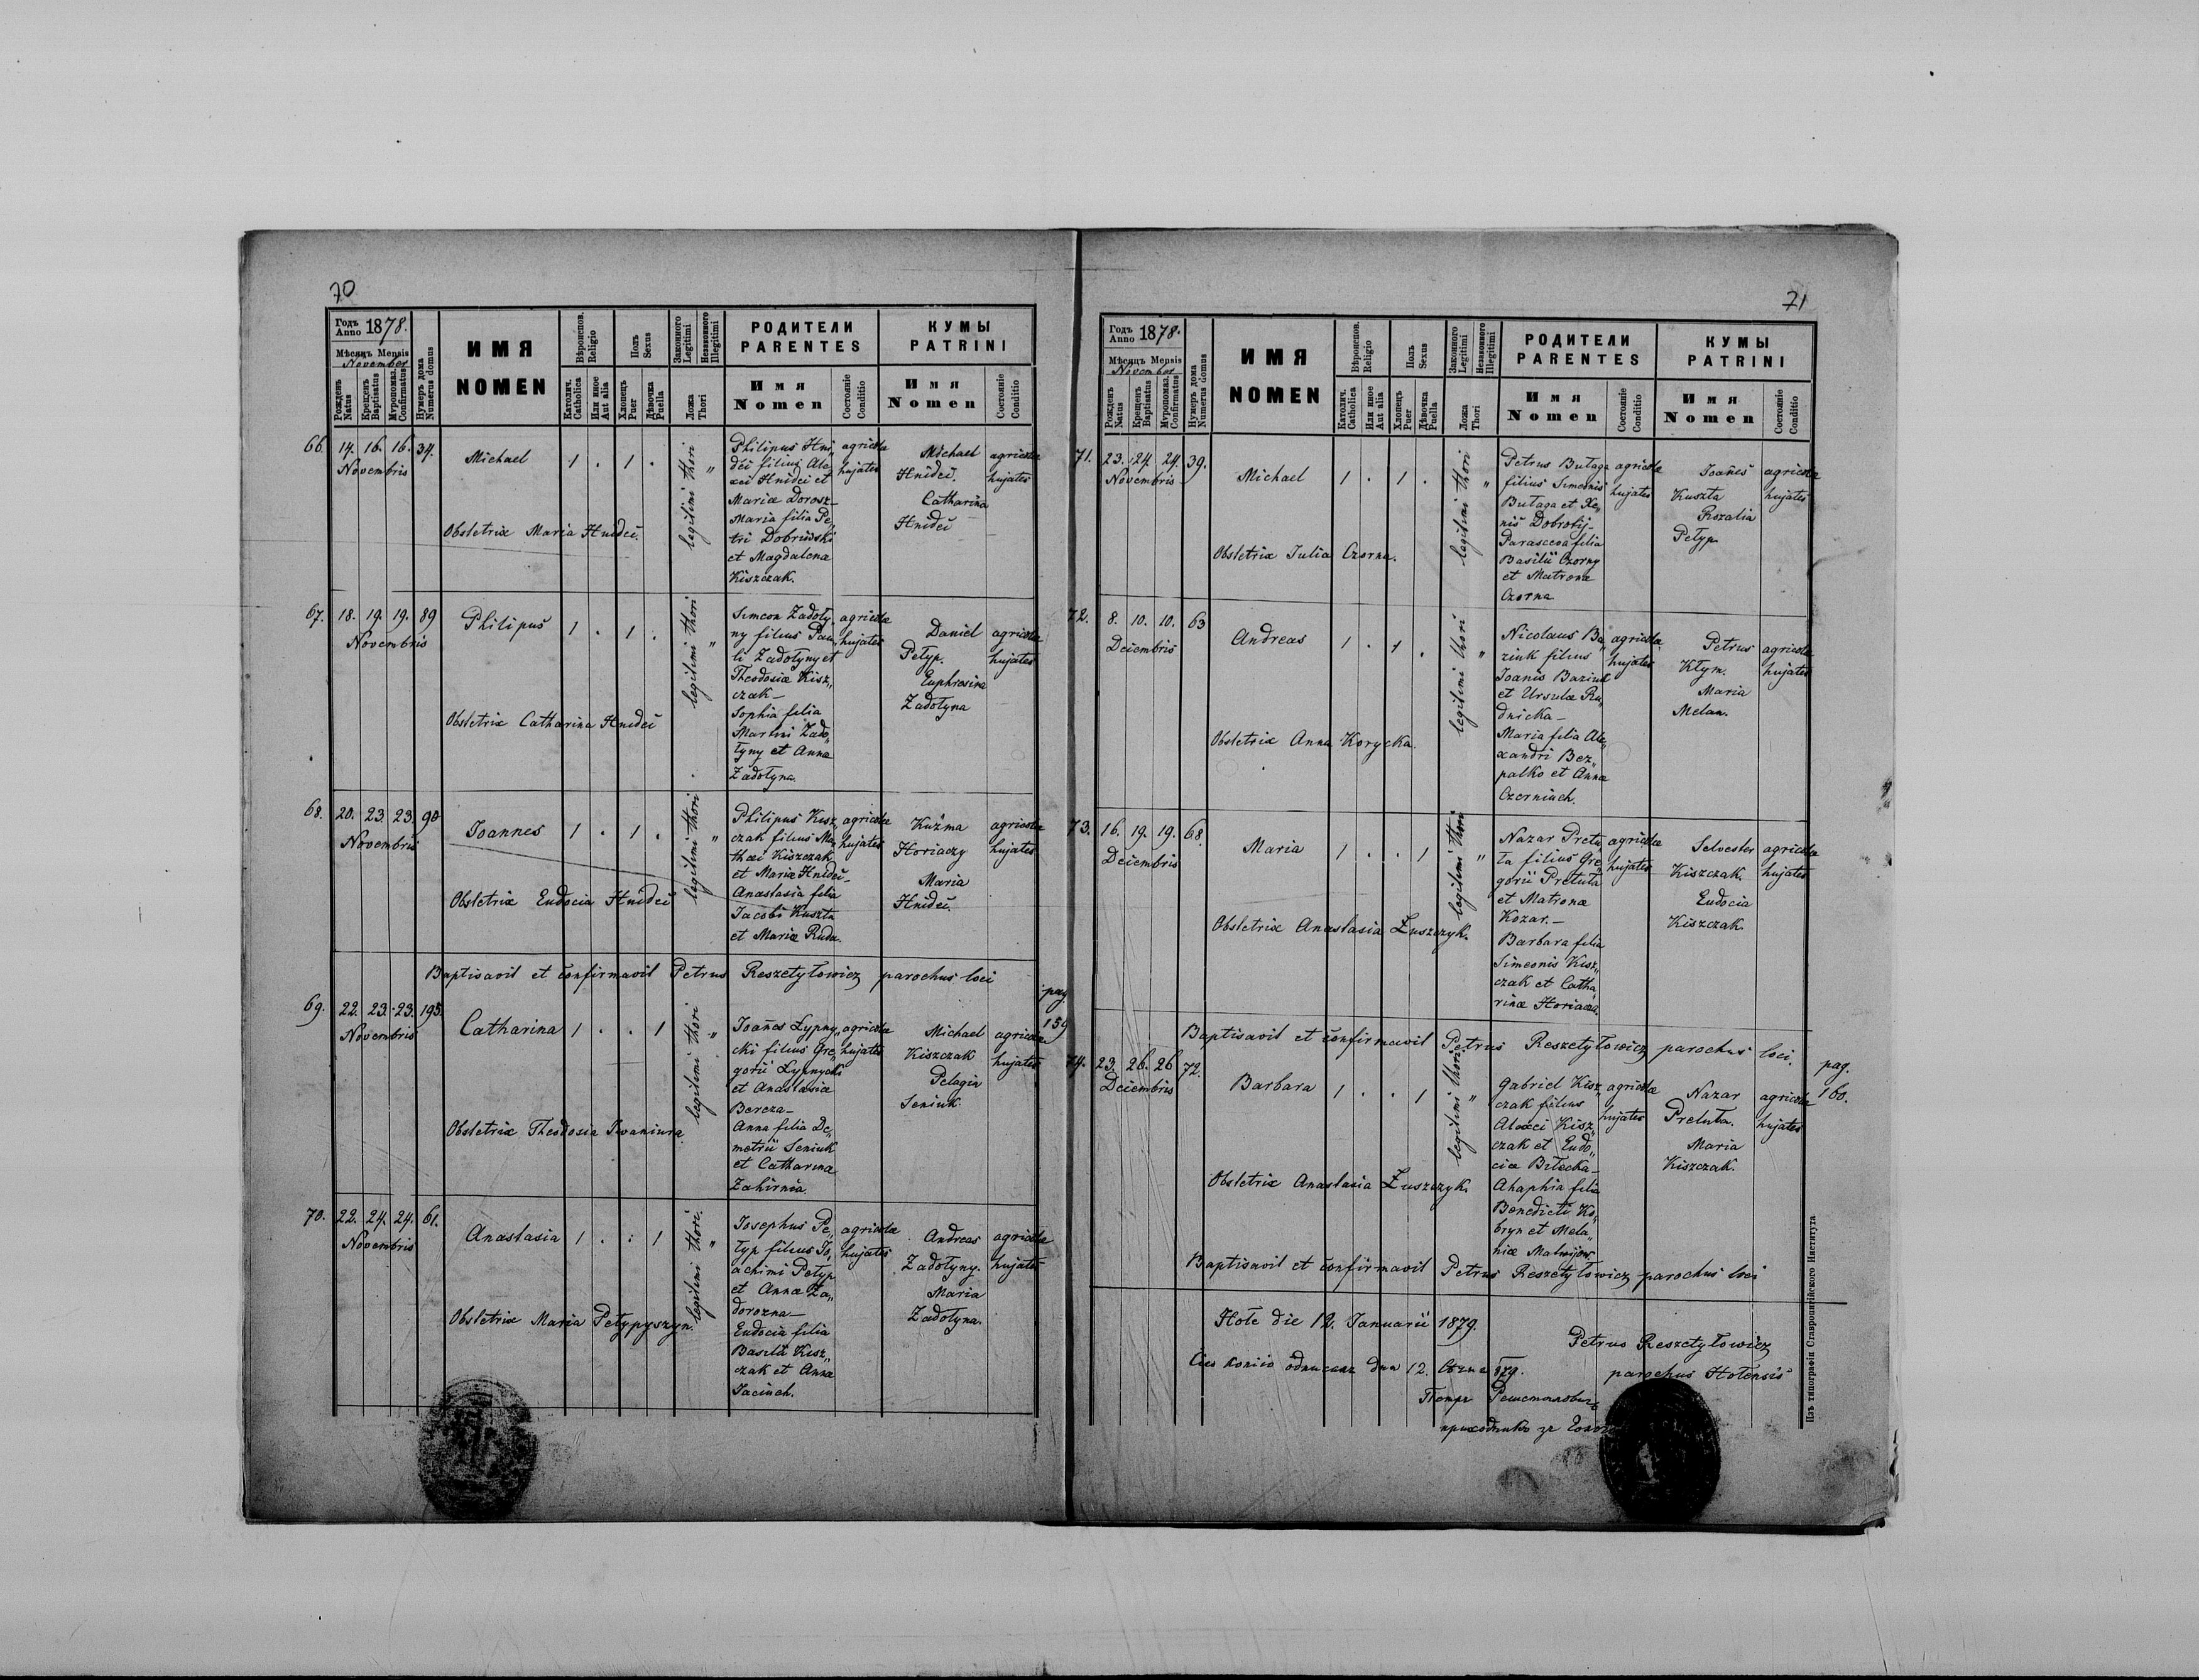 70
Годъ
Anno 1878.
Мѣсяцъ Mensis
November
Рожденъ
Natus
Крещенъ
Baptisatus
Мѵропомаз.
Confirmatus
Нумеръ дома
Numerus domus
ИМЯ
NOMEN
Вѣроиспов.
Religio
Католич.
Catholica
Или иное
Aut alia
Полъ
Sexus
Хлопецъ
Puer
Дѣвочка
Puella
Законного
Legitimi
Незаконного
Illegitimi
Ложа
Thori
РОДИТЕЛИ
PARENTES
Имя
Nomen
Состояніе
Conditio
КУМЫ
PATRINI
Имя
Nomen
Состояніе
Conditio
66. 14. 16. 16. 34.
Novembris
Michael 1 . 1 .
legitimi thori "
Obstetrix Maria Hnideć.
Philipus Hni„
deć filius Ale„
xei Hnideć et
Mariæ Dorosz—
Maria filia Pe„
tri Dobriwski
et Magdalena
Kiszczak.
agricolæ
hujates
Michael
Hnideć.
Catharina
Hnideć
agricolæ
hujates
67. 18. 19. 19. 89
Novembris
Philipus 1 . 1 .
legitimi thori "
Obstetrix Catharina Hnideć
Simeon Zadoły„
ny filius Pau„
li Zadołyny et
Theodosiæ Kisz„
czak—
Sophia filia
Martini Zado„
łyny et Anna
Zadołyna.
agricolæ
hujates
Daniel
Petyp.
Euphrosina
Zadołyna
agricolæ
hujates
68. 20. 23. 23. 90
Novembris
Joannes 1 . 1 .
legitimi thori "
Obstetrix Eudocia Hnideć
Philipus Kisz„
czak filius Ma„
thæi Kiszczak
et Mariæ Hnideć—
Anastasia filia
Jacobi Kuszta
et Mariæ Ruda.
agricolæ
hujates
Kuźma
Horiaczy
Maria
Hnideć.
agricolæ
hujates
Baptisavit et confirmavit Petrus Reszetyłowicz parochus loci
pag.
159
69. 22. 23. 23. 195.
Novembris
Catharina 1 . . 1
legitimi thori "
Obstetrix Theodosia Iwaniura
Joañes Łypny„
cki filius Gre„
gorii Łypnycki
et Anastasiæ
Bereza—
Anna filia De„
metrii Seniuk
et Catharina
Zahirnia.
agricolæ
hujates
Michael
Kiszczak
Pelagia
Seniuk.
agricolæ
hujates
70. 22. 24. 24. 61.
Novembris
Anastasia 1 . . 1
legitimi thori. "
Obstetrix Maria Petypyszyn.
Josephus Pe„
typ filius Jo„
achimi Petyp
et Annæ Za„
dorozna—
Eudocia filia
Basilii Kisz„
czak et Anna
Jaciuch.
agricolæ
hujates
Andreas
Zadołyny.
Maria
Zadołyna.
agricolæ
hujates
71
Годъ
Anno 1878.
Мѣсяцъ Mensis
November
Рожденъ
Natus
Крещенъ
Baptisatus
Мѵропомаз.
Confirmatus
Нумеръ дома
Numerus domus
ИМЯ
NOMEN
Вѣроиспов.
Religio
Католич.
Catholica
Или иное
Aut alia
Полъ
Sexus
Хлопецъ
Puer
Дѣвочка
Puella
Законного
Legitimi
Незаконного
Illegitimi
Ложа
Thori
РОДИТЕЛИ
PARENTES
Имя
Nomen
Состояніе
Conditio
КУМЫ
PATRINI
Имя
Nomen
Состояніе
Conditio
71. 23. 24. 24. 39.
Novembris
Michael 1 . 1 .
legitimi thori "
Obstetrix Julia Czorna.
Petrus Bułaga
filius Simeonis
Bułaga et Xe„
nis Dobrotij—
Parasceva filia
Basilii Czorny
et Matrona
Czorna
agricolæ
hujates
Joañes
Kuszta
Rozalia
Petyp.
agricolæ
hujates
72. 8. 10. 10. 63
Decembris
Andreas 1 . 1 .
legitimi thori "
Obstetrix Anna Korycka.
Nicolaus Ba„
ziuk filius
Joanis Baziuk
et Ursulæ Ru„
dnicka—
Maria filia Ale„
xandri Bez„
palko et Anna
Czerniuch.
agricolæ
hujates
Petrus
Kłym.
Maria
Melan.
agricolæ
hujates
73. 16. 19. 19. 68.
Decembris
Maria 1 . . 1
legitimi thori "
Obstetrix Anastasia Łuszczyk.
Nazar Pretu„
ła filius Gre„
gorii Pretuła
et Matronæ
Kozar.—
Barbara filia
Simeonis Kisz„
czak et Catha„
rinæ Horiacza.
agricolæ
hujates
Selvester
Kiszczak.
Eudocia
Kiszczak.
agricolæ
hujates
Baptisavit et confirmavit Petrus Reszetyłowicz parochus loci.
pag.
160.
74. 23. 26. 26 72.
Decembris
Barbara 1 . . 1
legitimi thori "
Obstetrix Anastasia Łuszczyk.
Gabriel Kisz„
czak filius
Alexei Kisz„
czak et Eudo„
ciæ Biłecka—
Ahaphia filia
Benedicti Ko„
bryn et Mela„
niæ Matwijow.
agricolæ
hujates
Nazar
Pretuła.
Maria
Kiszczak.
agricolæ
hujates
Baptisavit et confirmavit Petrus Reszetyłowicz parochus loci
Hołe die 12. Januarii 1879.
Petrus Reszetyłowicz
parochus Hołensis
Сію копію дня 12. 879.
Петръ Решетиловичъ
приходникъ
Изъ типографіи Ставропигійского Института